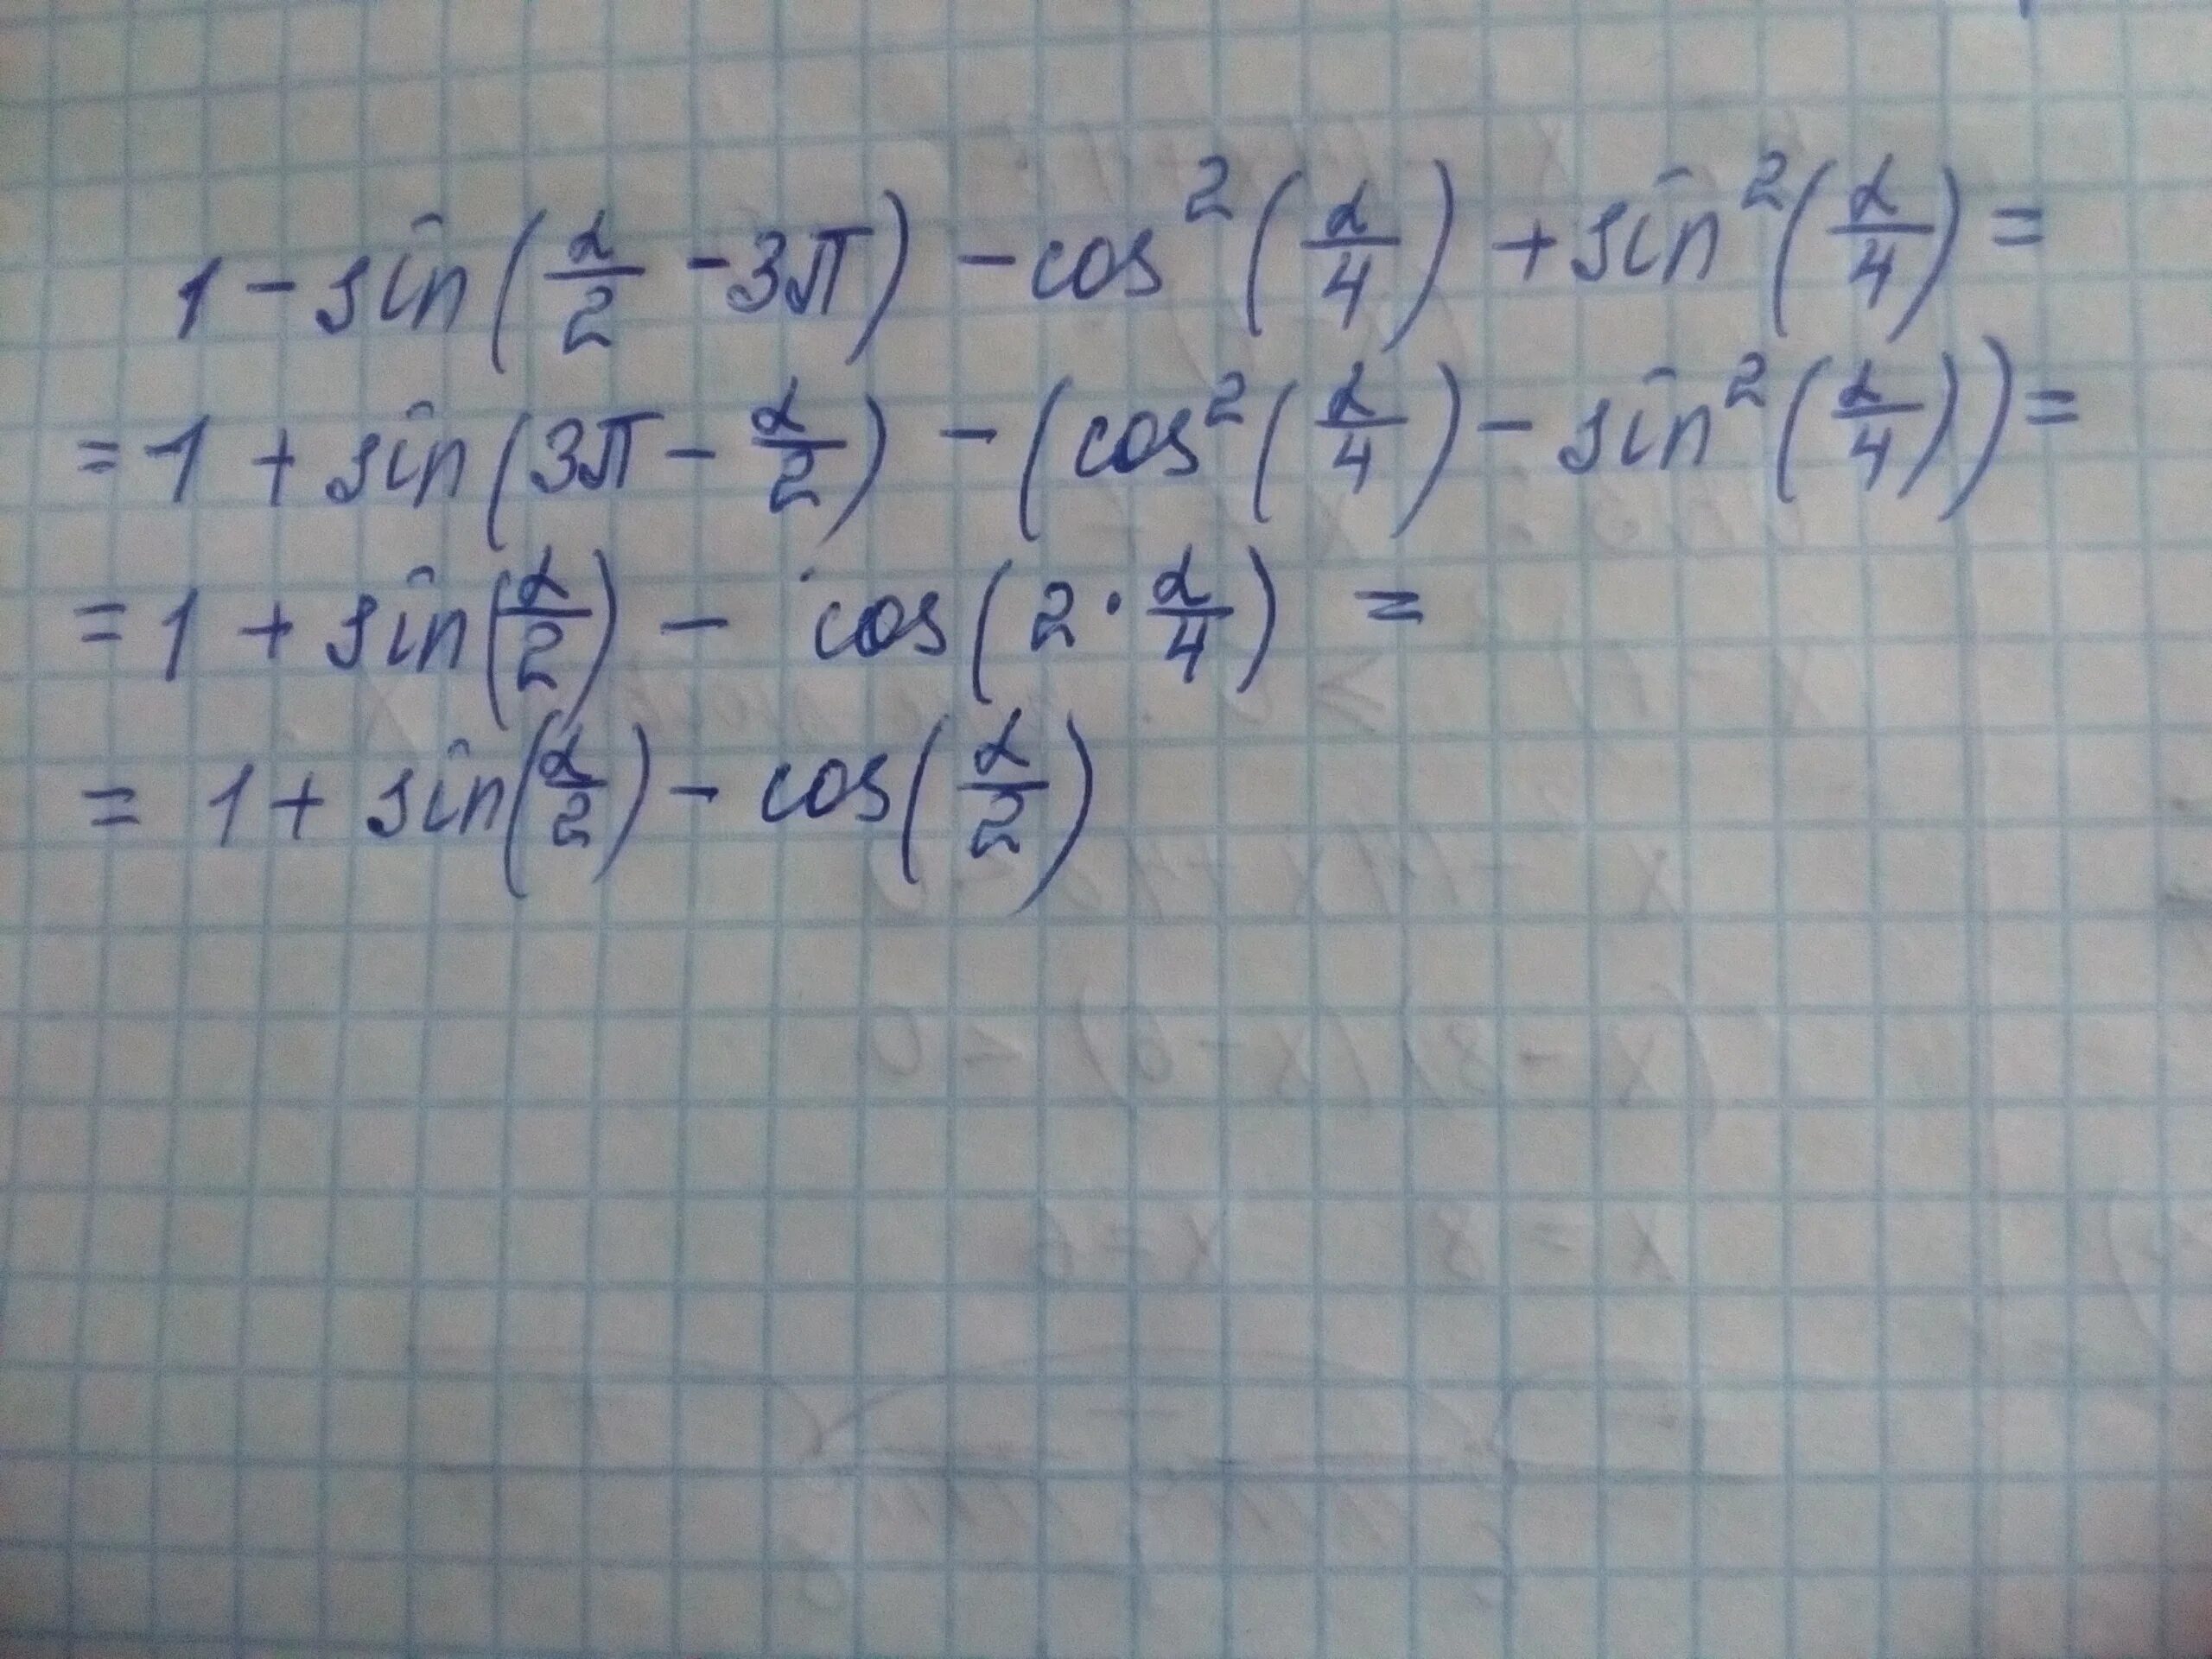 1 - sin(α/2 - 3π) - cos²(α/4) + sin²(α/4) =
= 1 + sin(3π - α/2) - (cos²(α/4) - sin²(α/4)) =
= 1 + sin(α/2) - cos(2 · α/4) =
= 1 + sin(α/2) - cos(α/2)